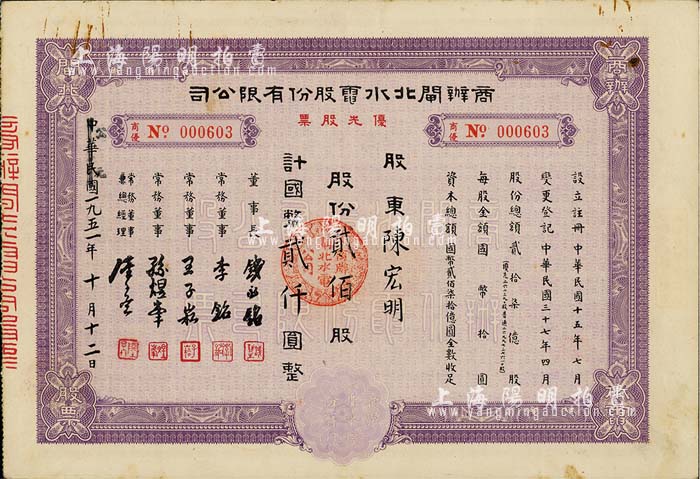 商辦閘北水電股份有限公司
優先股票
商優 No 000603
商優 No 000603
設立註冊 中華民國十五年七月
變更登記 中華民國三十七年四月
股份總額貳拾柒億股
每股金額國幣拾圓
資本總額國幣貳佰柒拾億圓全數收足
股東陳宏明
股份貳佰股
計國幣貳仟圓整
董事長 錢永銘
常務董事 李銘
常務董事 王子崧
常務董事 孫煜峯
常務董事兼總經理
公曆一九五一年十月十二日
商辦
閘北
股票
上海陽明拍賣
www.yangmingauction.com
上海陽明拍賣
www.yangmingauction.com
上海陽明拍賣
www.yangmingauction.com